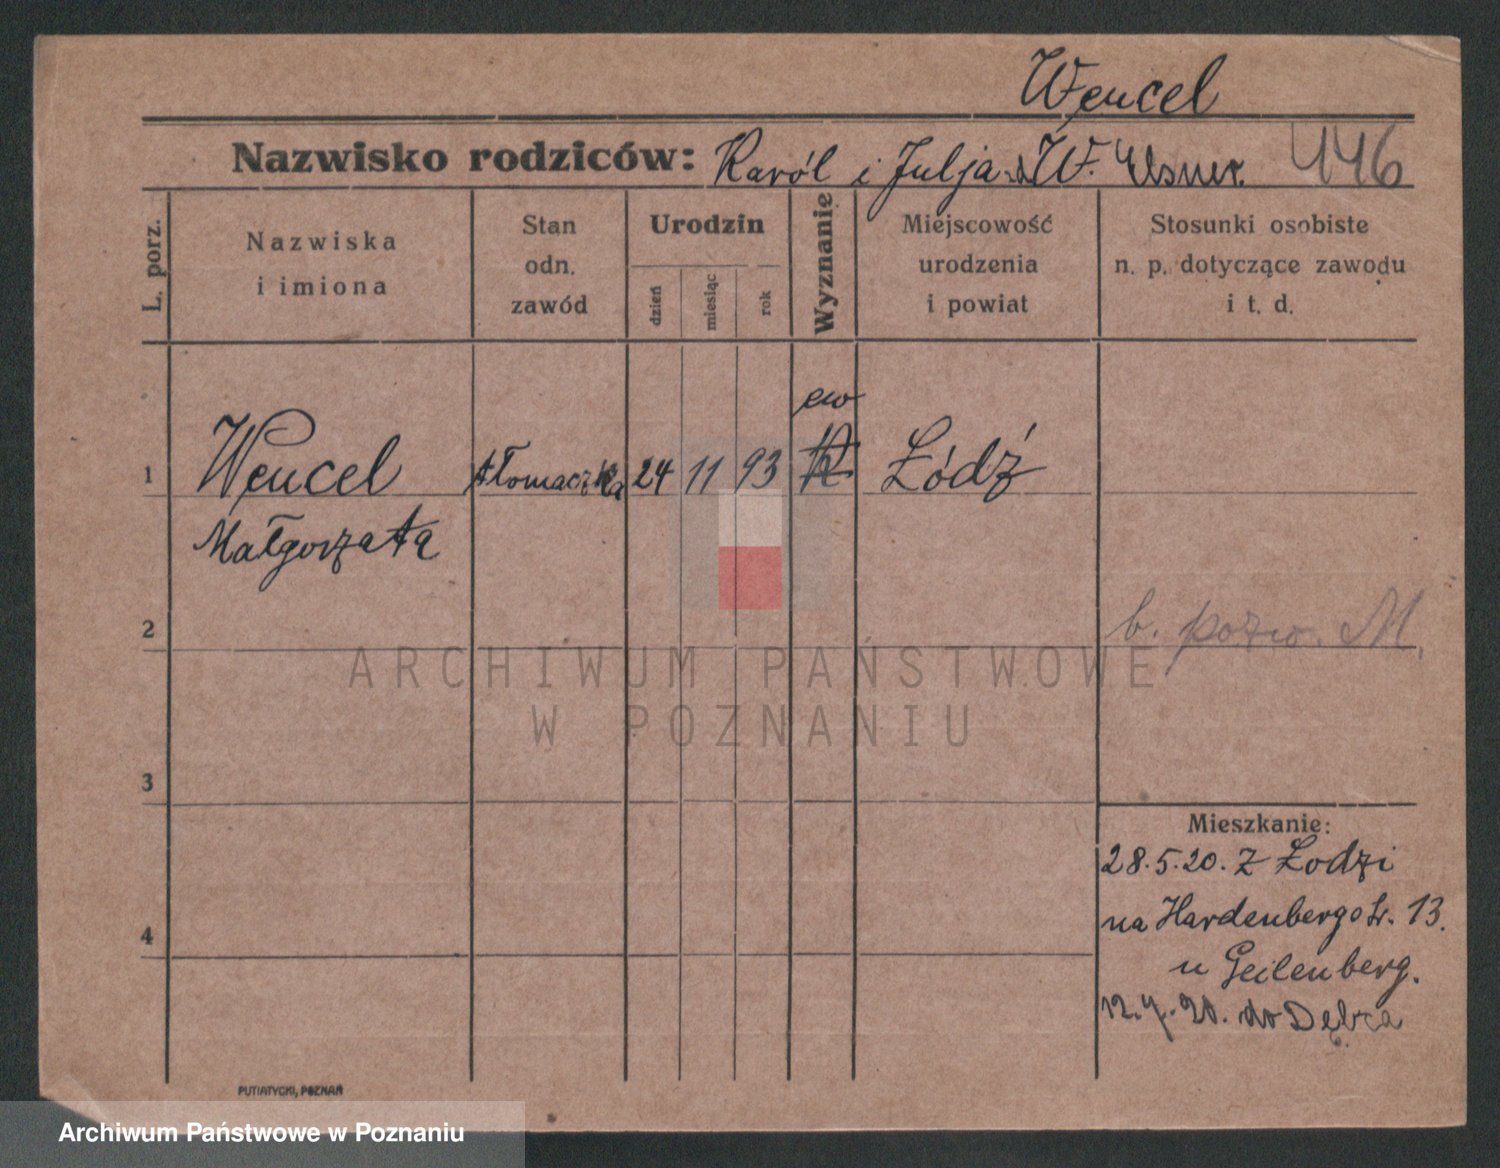 Wencel
Nazwisko rodziców: Karól i Julja W. Elsner. 446
L. porz.
Nazwiska
i imiona
Stan
odn.
zawód
Urodzin
dzień
miesiąc
rok
Wyznanie
Miejscowość
urodzenia
i powiat
Stosunki osobiste
n. p. dotyczące zawodu
i t. d.
ew
1 Wencel tłomaczka 24 11 93 K Łódź
Małgorzata
2 b. pozw. M.
ARCHIWUM PAŃSTWOWE
W POZNANIU
3
Mieszkanie:
28.5.20. z Łodzi
na Hardenbergstr. 13.
4
u Geilenberg.
12.7.20. do Dębca
PUTIATYCKI, POZNAŃ
Archiwum Państwowe w Poznaniu